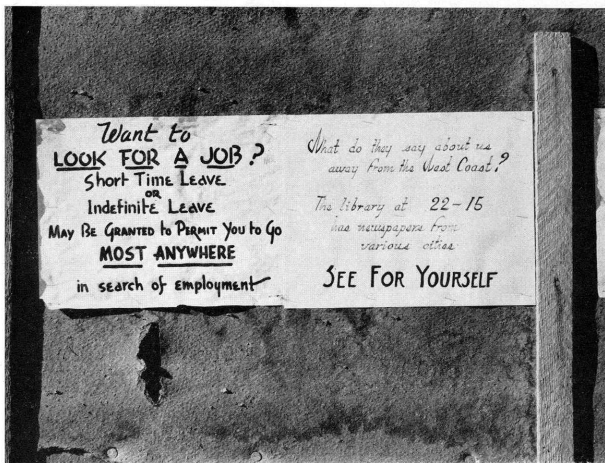 Want to
LOOK FOR A JOB?
Short Time Leave
OR
Indefinite Leave
MAY BE GRANTED to PERMIT YOU to GO
MOST ANYWHERE
in search of employment
What do they say about us
away from the West Coast?
The library at 22-15
has newspapers from
various cities.
SEE FOR YOURSELF